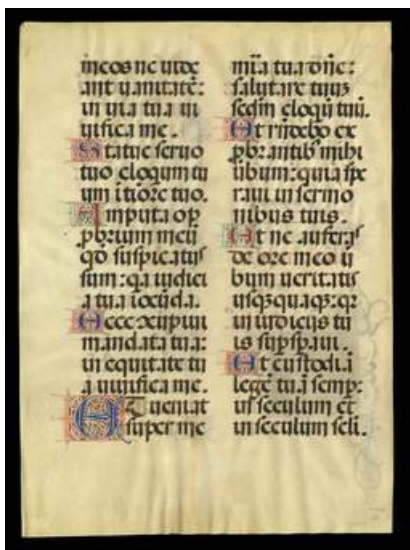 meos ne uide
ant uanitatē:
in uia tua ui
uifica me.
Statue seruo
tuo eloquium tu
um ī tiore tuo.
Amputa op
pbrium meū
qđ suspicatus
sum: qa iudici
a tua iocūda.
Ecce concupiui
mandata tua:
in equitate tu
a uiuifica me.
Et ueniat
super me
mīa tua dñe:
salutare tuū
sedm eloqū tuū.
Et rñdebo ex
pbrantib mihi
ūbum: quia spe
raui in sermo
nibus tuis.
Et ne auferas
de ore meo ū
bum ueritatis
usqꝫquaqꝫ: qr
in iudicijs tu
is supspaui.
Et custodiā
legē tuā semp:
in seculum et
in seculum scli.